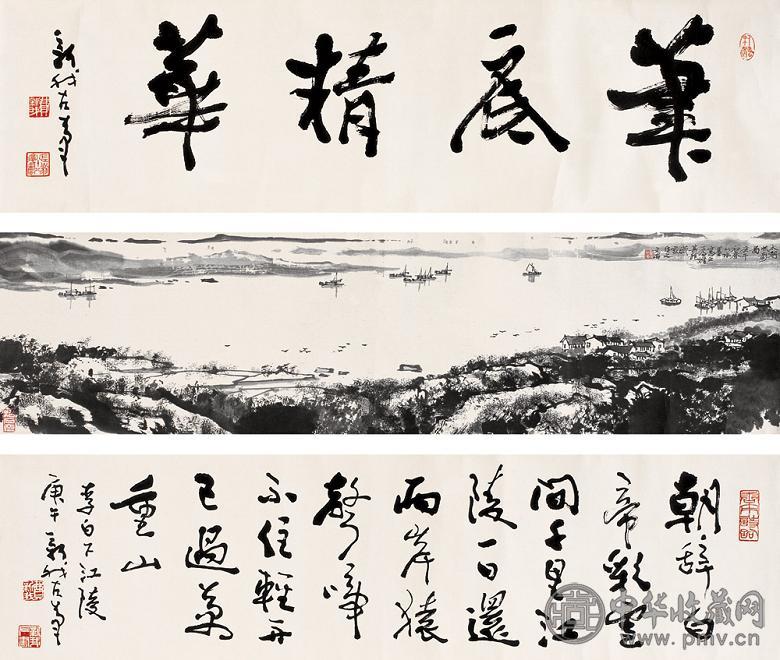 筆底精華
新我左
朝辭白
帝彩雲
間千里江
陵一日還
兩岸猿
聲啼
不住輕舟
已過萬
重山
李白下江陵
庚午新我左
中华收藏网
www.pmv.cn